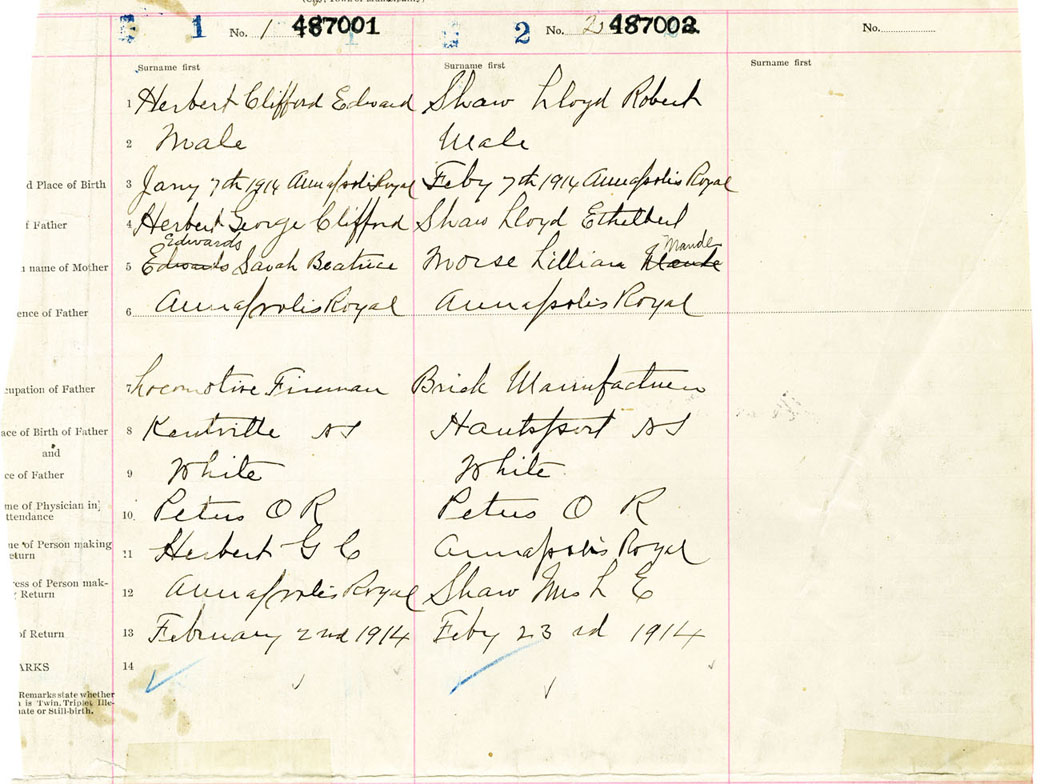 (City, Town or Municipality)
1 No. 1 487001 2 No. 2 487002 No.
Surname first Surname first Surname first
1 Herbert Clifford Edward Shaw Lloyd Robert
2 Male Male
d Place of Birth 3 Jany 7th 1914 Annapolis Royal Feby 7th 1914 Annapolis Royal
f Father 4 Herbert George Clifford Shaw Lloyd Ethelbert
Edwards Maude
n name of Mother 5 Edwards Sarah Beatrice Morse Lillian Maude
ence of Father 6 Annapolis Royal Annapolis Royal
cupation of Father 7 Locomotive Fireman Brick Manufacturer
ace of Birth of Father 8 Kentville NS Hantsport NS
and
ce of Father 9 White White
me of Physician in
ttendance 10 Peters O R Peters O R
me of Person making
eturn 11 Herbert G C Annapolis Royal
ress of Person mak-
Return 12 Annapolis Royal Shaw Mrs L E
of Return 13 February 2nd 1914 Feby 23rd 1914
ARKS 14
Remarks state whether
is Twin, Triplet, Ille-
mate or Still-birth.